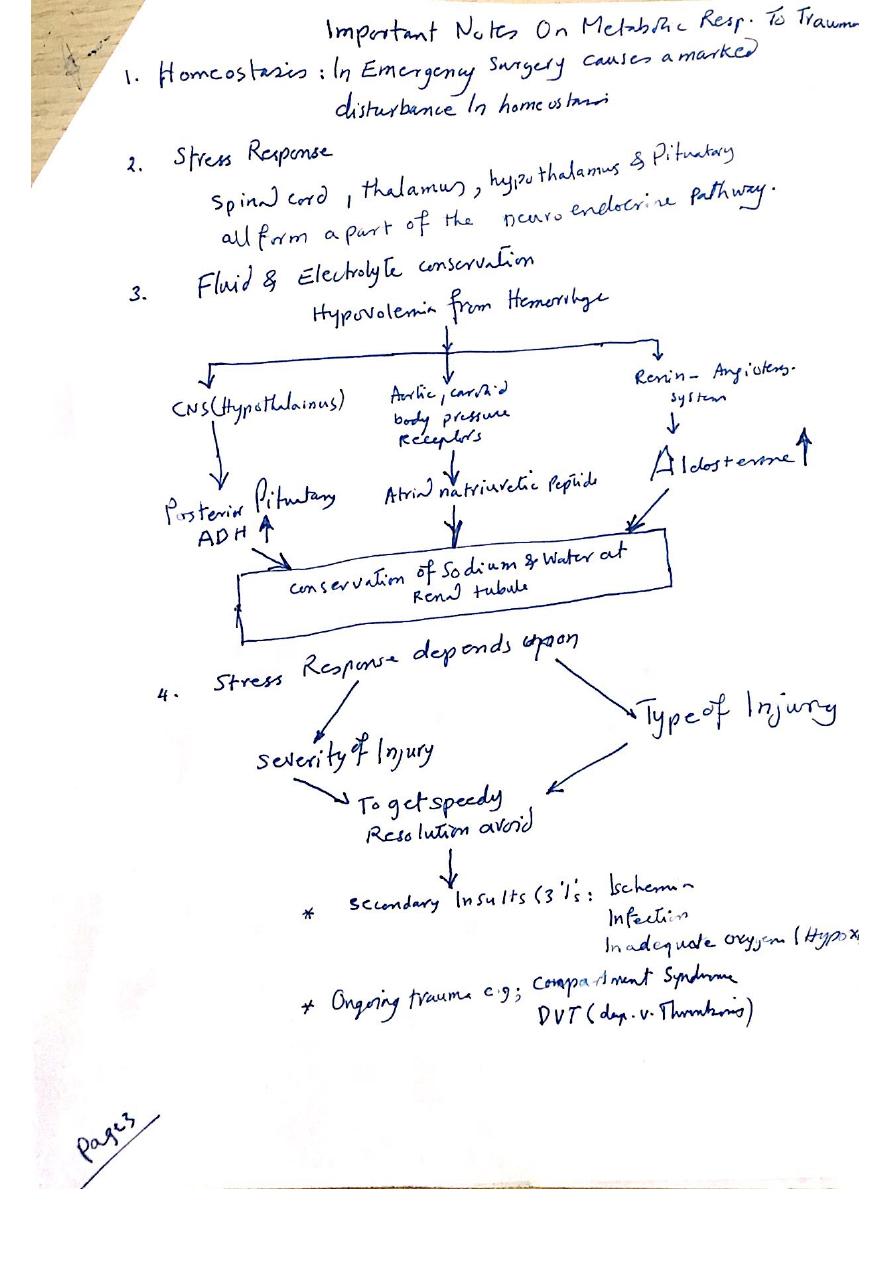 Important Notes On Metabolic Resp. To Trauma
1. Homeostasis : In Emergency Surgery causes a marked
disturbance In homeostasi
2. Stress Response
Spinal cord, thalamus, hypothalamus & Pituatary
all form a part of the neuro endocrine Pathway.
3. Fluid & Electrolyte conservation
Hypovolemia from Hemorrhge
CNS (Hypothalamus)
Aortic, carotid
body pressure
Receptors
Renin - Angiotens.
system
Posterior Pituatary
ADH ↑
Atrial natriuretic Peptide
Aldosterone ↑
conservation of Sodium & Water at
Renal tubule
4. Stress Response depends upon
Severity of Injury
Type of Injury
To get speedy
Resolution avoid
* Secondary Insults (3 I's : Ischemia
Infection
Inadequate oxygen (Hypox
* Ongoing trauma e.g; Compartment Syndrome
DVT (deep. v. Thrombosis)
Page 3